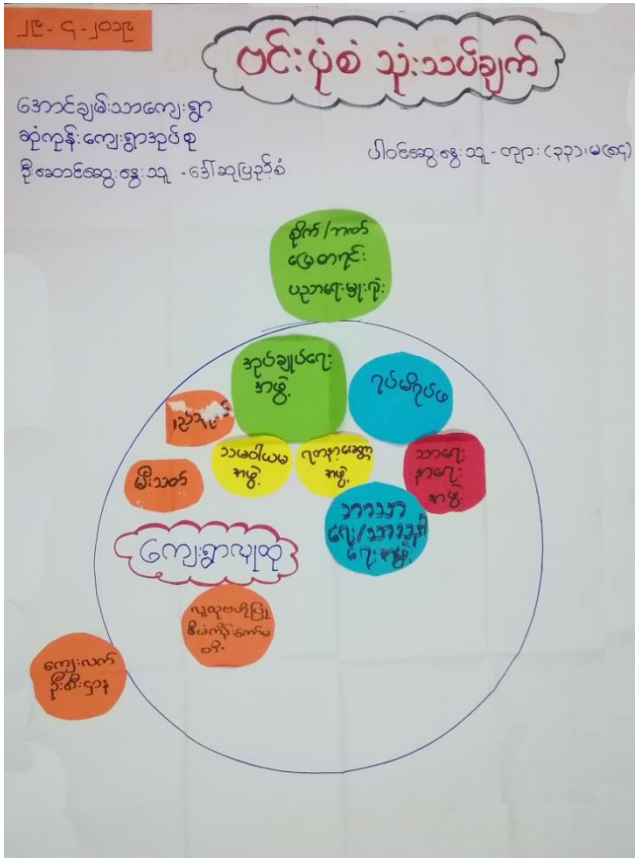 ၂၉-၄-၂၀၁၉
ဗင်းပုံစံ သုံးသပ်ချက်
အောင်ချမ်းသာကျေးရွာ
ဆုံကုန်းကျေးရွာအုပ်စု
ဦးဆောင်ဆွေးနွေးသူ -ဒေါ်ဆုပြည့်စုံ
ပါဝင်ဆွေးနွေးသူ - ကျား (၃၃)၊မ(၈၄)
စိုက်/ဘဏ်
မြေစာရင်း
ပညာရေးမှူးရုံး
အုပ်ချုပ်ရေး
အဖွဲ့
ရပ်မိရပ်ဖ
သမဝါယမ
အဖွဲ့
ရတနာ့မေတ္တာ
အဖွဲ့
သာရေး
နာရေး
အဖွဲ့
မီးသတ်
ဘာသာ
ရေး/သာသနာ့
ရေးအဖွဲ့
ကျေးရွာလူထု
လူထုဗဟိုပြု
စီမံကိန်းကော်မ
တီ
ကျေးလက်
ဦးစီးဌာန